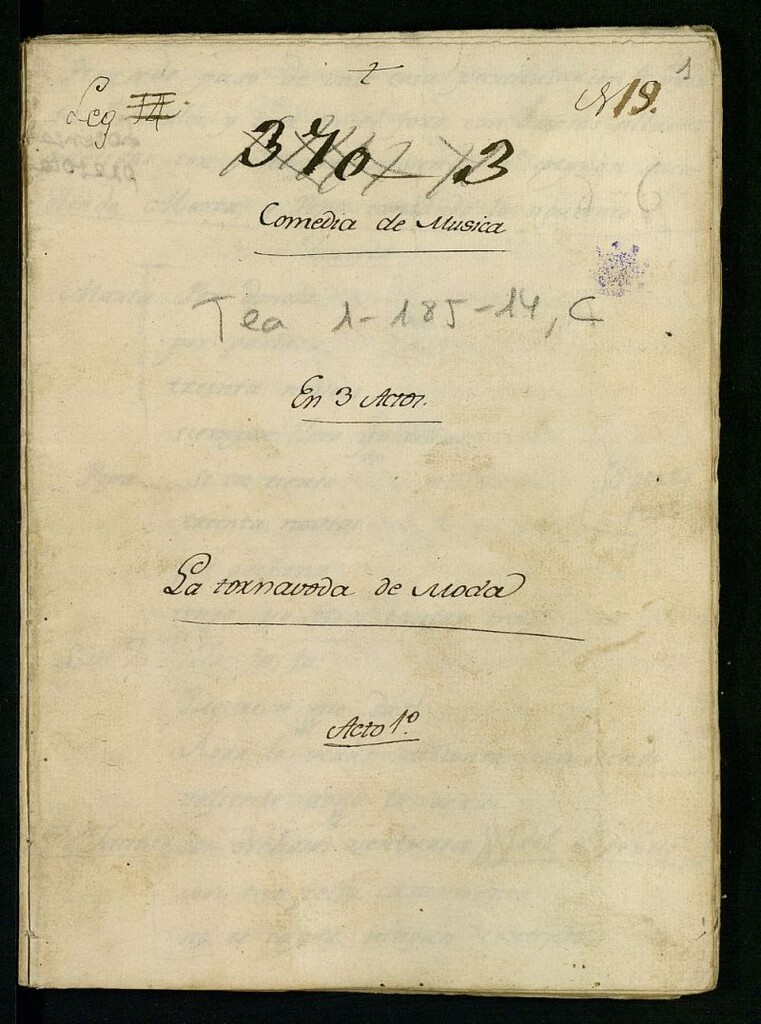 1
Leg
N19.
370-3
Comedia de Musica
Tea 1-185-14, C
En 3 Actos.
La tornavoda de Moda
Acto 1º